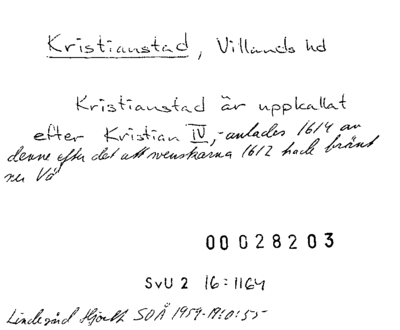 Kristianstad, Villands hd
Kristianstad är uppkallat
efter Kristian IV, - anlades 1614 av
denne efter det att svenskarna 1612 hade bränt
ner Vä
00028203
SvU 2 16:1164
Lindegård Hjorth SOÅ 1959-19